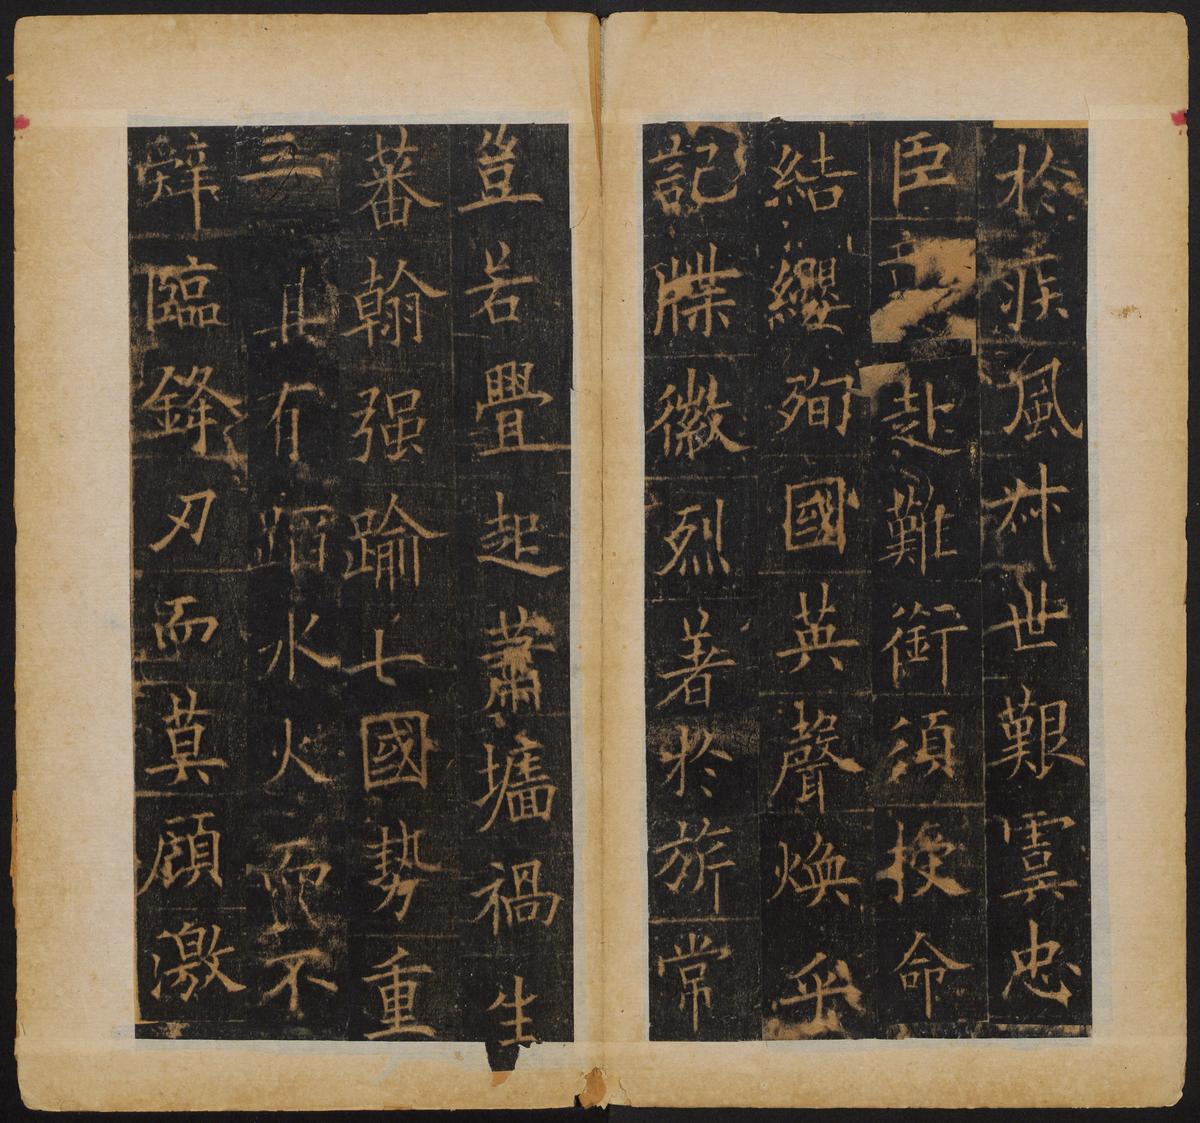 於疾風叔世艱虞忠
臣赴難銜須授命
結纓殉國英聲煥乎
記牒徽烈著於旂常
豈若疊起蕭墻禍生
蕃翰强踰七國勢重
三其有蹈水火而不
辭臨鋒刃而莫顧激